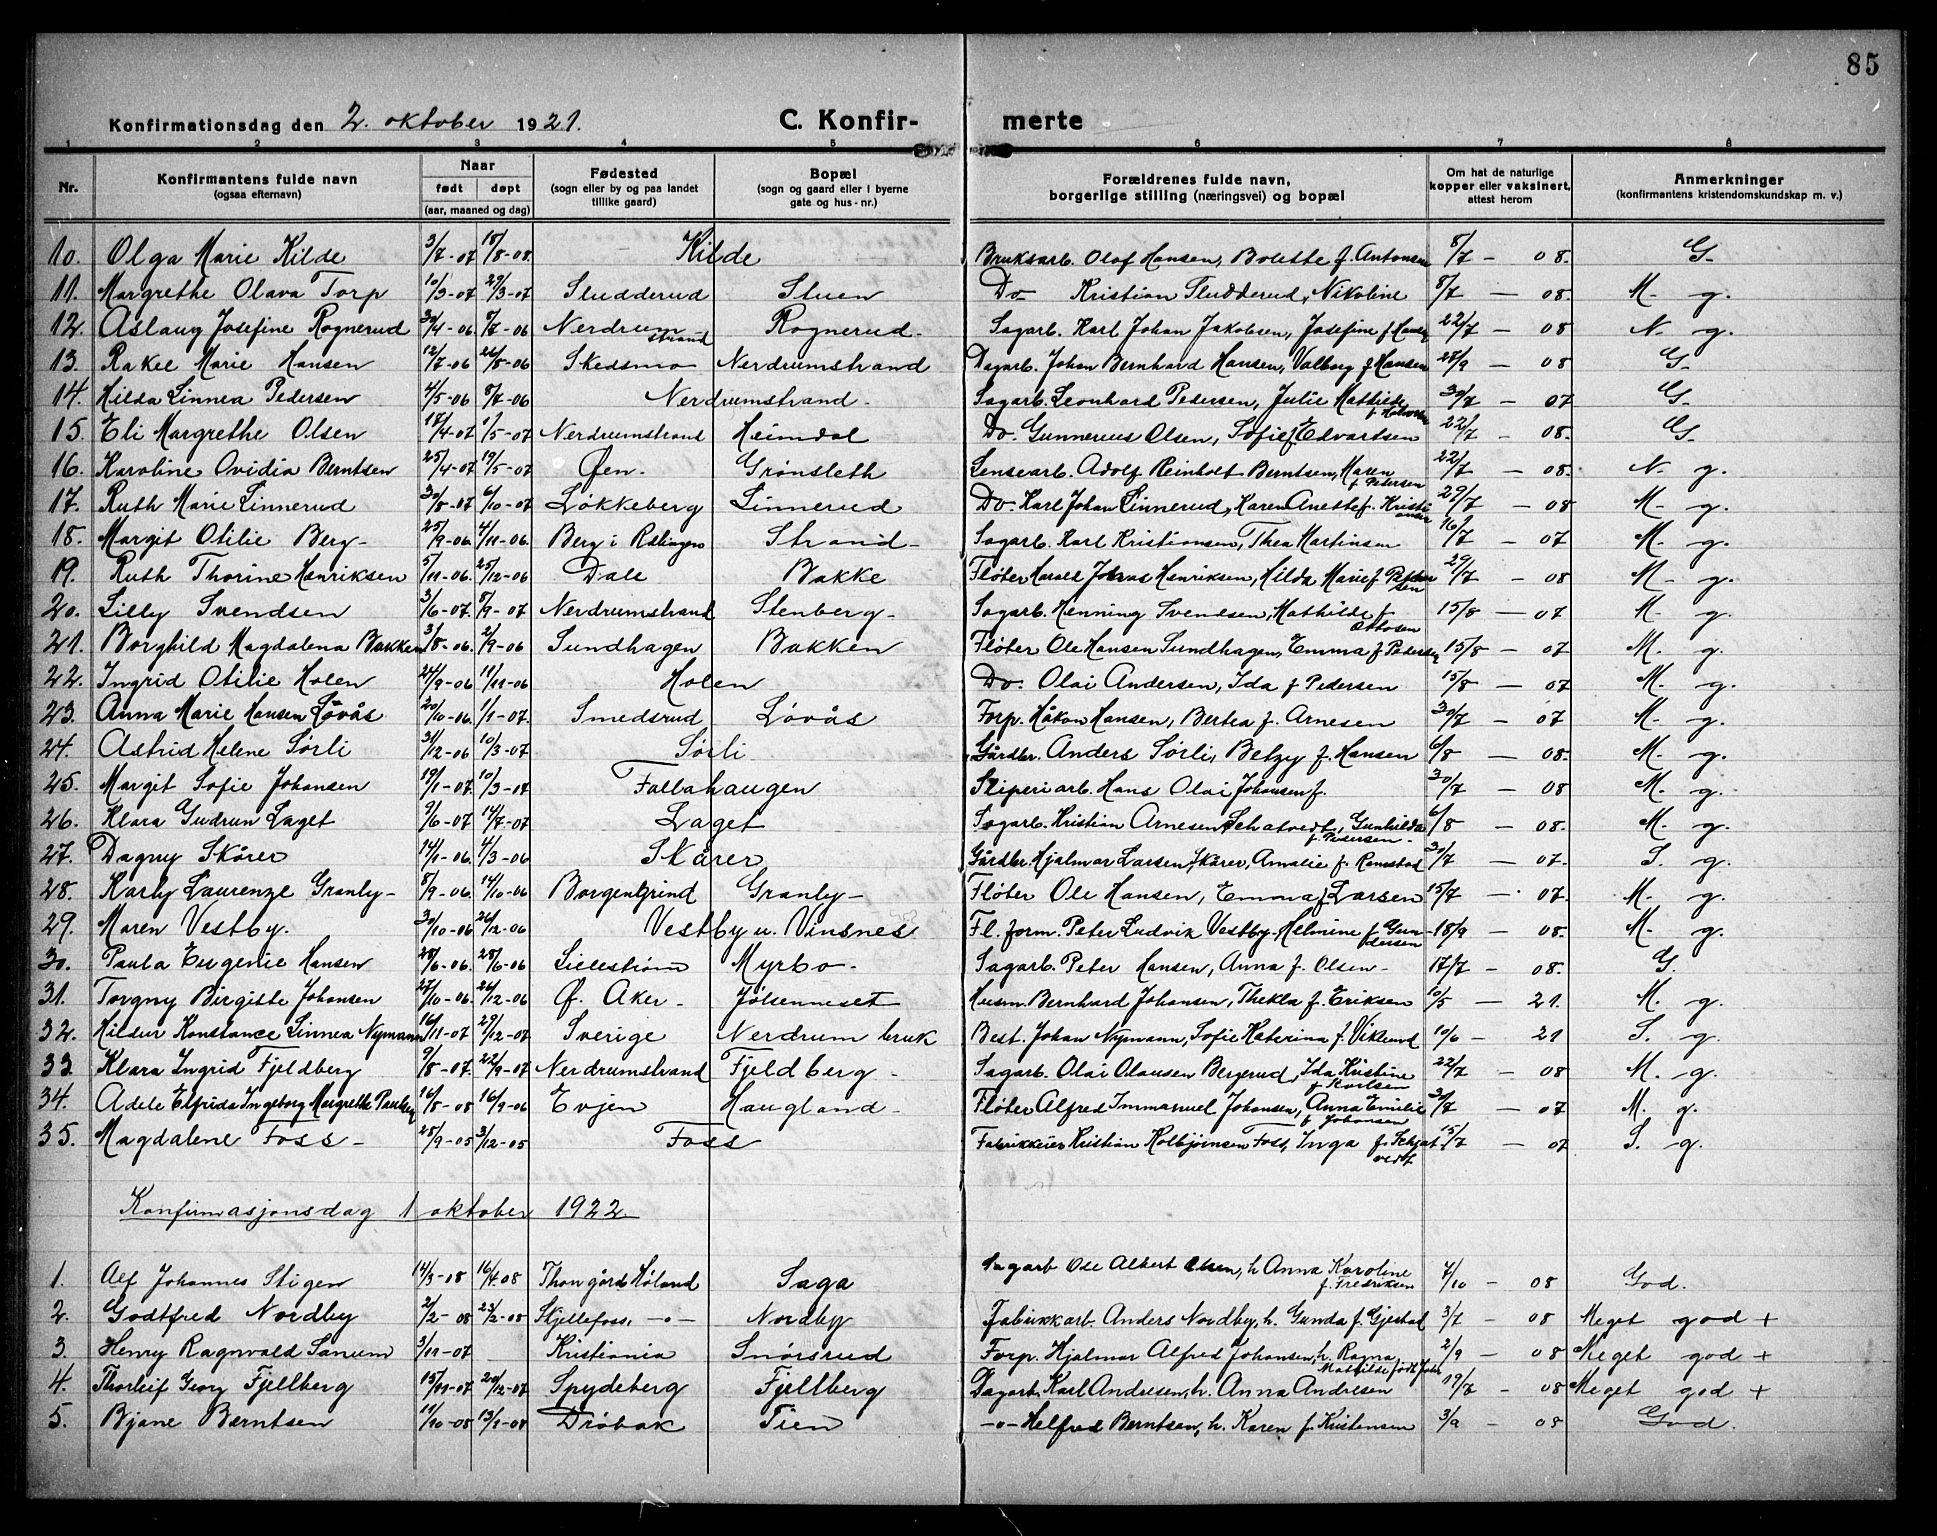 85
Konfirmationsdag den 2. oktober 1921. C. Konfir- merte
1 2 3 4 5 6 7 8
Nr. Konfirmantens fulde navn (ogsaa efternavn) Naar født døpt (aar, maaned og dag) Fødested (sogn eller by og paa landet tillike gaard) Bopæl (sogn og gaard eller i byerne gate og hus-nr.) Forældrenes fulde navn, borgerlige stilling (næringsvei) og bopæl Om hat de naturlige kopper eller vaksinert, attest herom Anmerkninger (konfirmantens kristendomskundskap m. v.)
10. Olga Marie Kilde 3/7-07 18/8-08. Kilde Bruksarb. Olof Hansen, Bolette f. Antonsen 8/7 - 08. G.
11. Margrethe Olava Torp 10/3-07 29/3-07 Sludderud Stuen Do Kristian Sludderud, Nikoline 8/7 - 08. M. g.
12. Aslaug Josefine Rognerud 30/4-06 8/7-06 Nerdrum strand Rognerud. Sagarb. Karl Johan Jakobsen, Josefine f. Hansen 22/7 - 08 N. g.
13. Rakel Marie Hansen 12/7-06 26/8-06 Skedsmo Nerdrumstrand Dagarb. Johan Bernhard Hansen, Valborg f. Hansen 28/9 - 08 G.
14. Hilda Linnea Pedersen 4/5-06 8/7-06 Nerdrumstrand. Sagarb. Leonhard Pedersen, Julie Mathilde 30/7 - 07 G.
15. Eli Margrethe Olsen 17/4-07 1/5-07 Nerdrumstrand Heimdal Do. Gunnerius Olsen, Sofie f. Edvartsen 22/7 - 08. G.
16. Karoline Ovidia Berntsen 25/4-07 19/5-07 Øen. Grønsleth Lensearb. Adolf Reinholt Berntsen, Maren f. Petersen 22/7 - 08. N. g.
17. Ruth Marie Linnerud 30/8-07 6/10-07 Løkkeberg Linnerud Do. Karl Johan Linnerud, Karen Anette f. Kristiansen 29/7 - 08 M. g.
18. Margit Otilie Berg- 25/9-06. 4/11-06. Berg i Rælingen Strand- Sagarb. Karl Kristiansen, Thea Martinsen 16/7 - 07 M. g.
19. Ruth Thorine Henriksen 5/11-06. 25/12-06 Dale Bakke Fløter Harald Johans Henriksen, Hilda Marie f. Pettersen 29/7 - 08 M. g.
20. Lilly Svendsen 3/6-07. 8/9-07 Nerdrumstrand Stenberg- Sagarb. Henning Svendsen, Mathilde f. Ottosen 15/8 - 07 M. g.
21. Borghild Magdalena Bakken 3/8-06. 2/9-06 Sundhagen Bakken Fløter Ole Hansen Sundhagen, Emma f. Pedersen 15/8 - 07 M. g.
22. Ingrid Otilie Holen 24/9-06 11/11-06 Holen Do. Olai Andersen, Ida f. Pedersen 15/8 - 07 M. g.
23. Anna Marie Hansen Løvås 20/10-06. 1/1-07. Smedsrud Løvås Forp. Håkon Hansen, Bertea f. Arnesen 30/7 - 07 M. g.
24. Astrid Helene Sørli 31/12-06 10/3-07 Sørli. Gårdbr. Anders Sørli, Betzy f. Hansen 6/8 - 08. M. g.
25. Margit Sofie Johansen 19/1-07. 10/3-07 Fallahaugen Sliperiarb. Hans Olai Johansen f. 30/7 - 08 M. g.
26. Klara Gudrun Laget 9/6-07 14/7-07 Laget Sagarb. Kristian Arnesen Schatvedt, Gunhilda f. Pedersen- 6/8 - 08. M. g.
27. Dagny Skårer 14/1-06. 4/3-06 Skårer Gårdbr. Hjalmar Larsen Skårer, Amalie f. Ramstad 30/7 - 07. S. g.
28. Karly Laurenze Granby- 8/9-06. 14/10-06 Borgengrind Granby- Fløter Ole Hansen, Emma f. Larsen 15/7 - 07. M. g.
29. Maren Vestby. 30/10-06 26/12-06 Vestby u. Vinsnes Fl. form. Peter Ludvik Vestby, Helmine f. Gundersen 18/9 - 08. M. g.
30. Paula Eugenie Hansen 28/6-06. 28/6-06 Lillestrøm Myrbo- Sagarb. Peter Hansen, Anna f. Olsen- 17/7 - 08. G.
31. Torgny Birgitte Johansen 27/10-06. 26/12-06 Ø. Aker- Jølsenneset Husm. Bernhard Johansen, Thekla f. Eriksen 10/5 - 21. M. g.
32. Hildur Konstance Linnea Nymann 16/11-07 29/12-07 Sverige Nerdrum bruk Best. Johan Nymann, Sofie Katerina f. Viklund 10/6 - 21 S. g.
33 Klara Ingrid Fjeldberg 9/8-07. 22/9-07 Nerdrumstrand Fjeldberg- Sagarb. Olai Olausen Bergerud, Ida Kristine f. Karlsen 22/7 - 08 M. g.
34. Adele Elfrida Ingeborg Margrethe Paulsen 16/8-08 16/9-06 Evjen Haugland- Fløter Alfred Immanuel Johansen, Anna Emilie f. Johansen 30/7 - 07 M. g.
35. Magdalene Foss- 25/9-05 3/12-05 Foss Fabrikkeier Kristian Kolbjørnsen Foss, Inga f. Schjatvedt 15/7 - 07 S. g.
Konfirmasjonsdag 1 oktober 1922
1. Alf Johannes Stigen 14/3-08 16/4 08 Thongård Høland Saga Sagarb Ole Albert Olsen, h. Anna Karoline f. Fredriksen 7/10 - 08 God.
2. Godtfred Nordby 2/2-08 23/2-08 Skjellefoss. -o- Nordby Fabrikkarb. Anders Nordby, h. Gunda f. Gjestad 3/7 - 08 Meget god +
3. Henry Ragnvald Sanum 3/11-07 Kristiania Snørsrud Forp. Hjalmar Alfred Johansen, h. Ragna Mathilde født Joh. 2/9 - 08 Meget god +
4. Thorleif Georg Fjellberg 15/11-07 20/12-07 Spydeberg Fjellberg Dagarb. Karl Andresen, h. Anna Andresen 19/7 - 08 Meget god +
5. Bjane Berntsen 11/10-08 13/9-08 Drøbak Tien -o- Helfred Berntsen, h. Karen f. Kristensen 3/9 - 08 God.